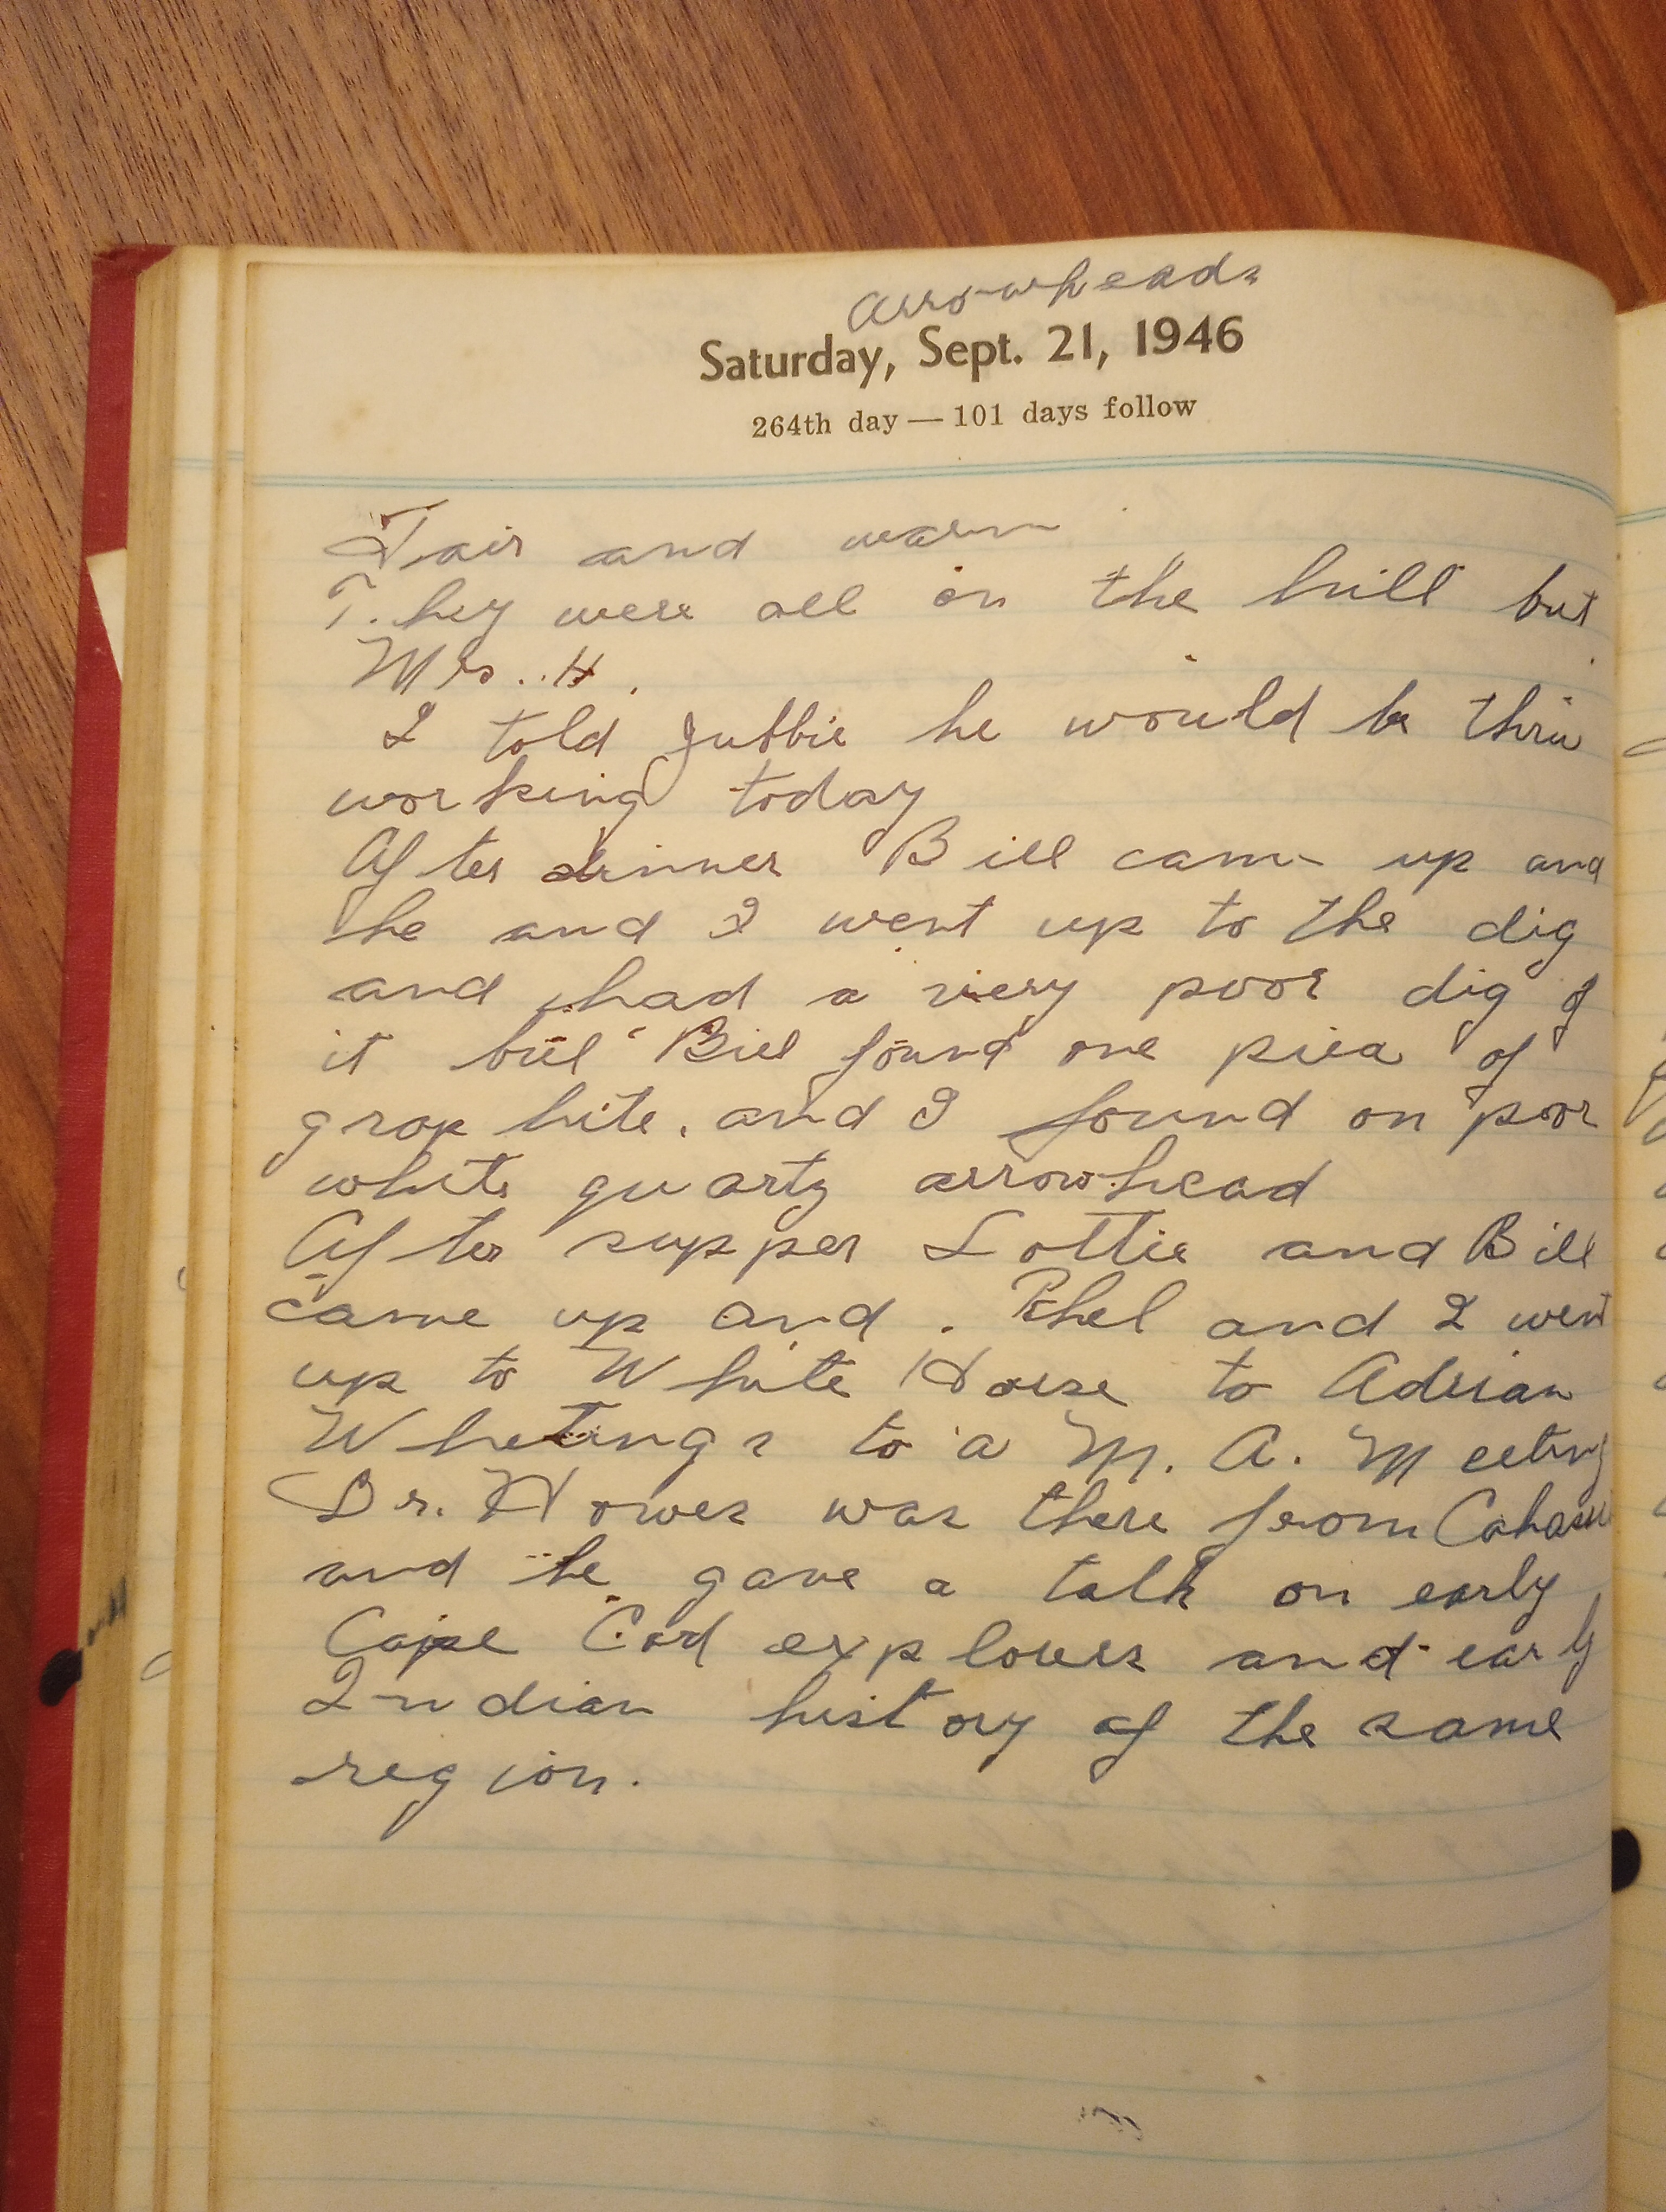 Arrowheads
Saturday, Sept. 21, 1946
264th day — 101 days follow
Fair and warm
They were all on the hill but
Mrs. H.
I told Jubbie he would be thru
working today
After dinner Bill came up and
he and I went up to the dig
and had a very poor dig of
it but Bill found one piece of
graphite. and I found on poor
white quartz arrowhead
After supper Lottie and Bill
came up and . Ethel and I went
up to White Horse to Adrian
Whetings to a M. A. Meeting
Dr. Howes was there from
and he gave a talk on early
Cape Cod explores and early
Indian history of the same
region.